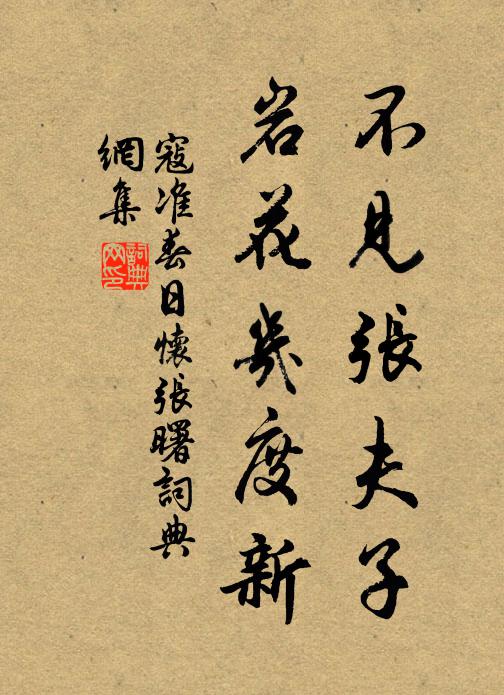 不見張夫子
岩花幾度新
寇准春日懷張曙詞典
網集
詞典
网印